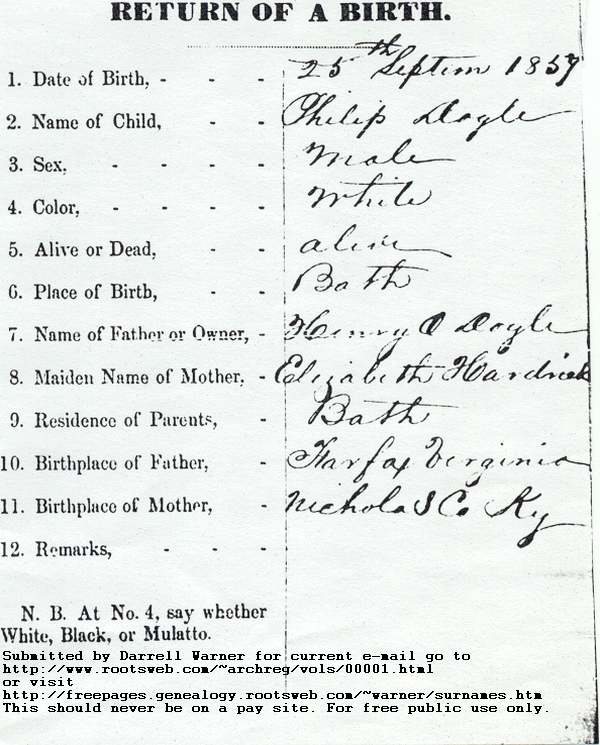 RETURN OF A BIRTH.
1. Date of Birth, - - - 25th Septem 1857
2. Name of Child, - - Philip Doyle
3. Sex, - - - - Male
4. Color, - - - - White
5. Alive or Dead, - - alive
6. Place of Birth, - - Bath
7. Name of Father or Owner, - Henry O Doyle
8. Maiden Name of Mother, - Elizabeth Hardrick
9. Residence of Parents, - Bath
10. Birthplace of Father, - Farfax Verginia
11. Birthplace of Mother, - Nicholas Co Ky
12. Remarks, - - -
N. B. At No. 4, say whether
White, Black, or Mulatto.
Submitted by Darrell Warner for current e-mail go to
http://www.rootsweb.com/~archreg/vols/00001.html
or visit
http://freepages.genealogy.rootsweb.com/~warner/surnames.htm
This should never be on a pay site. For free public use only.